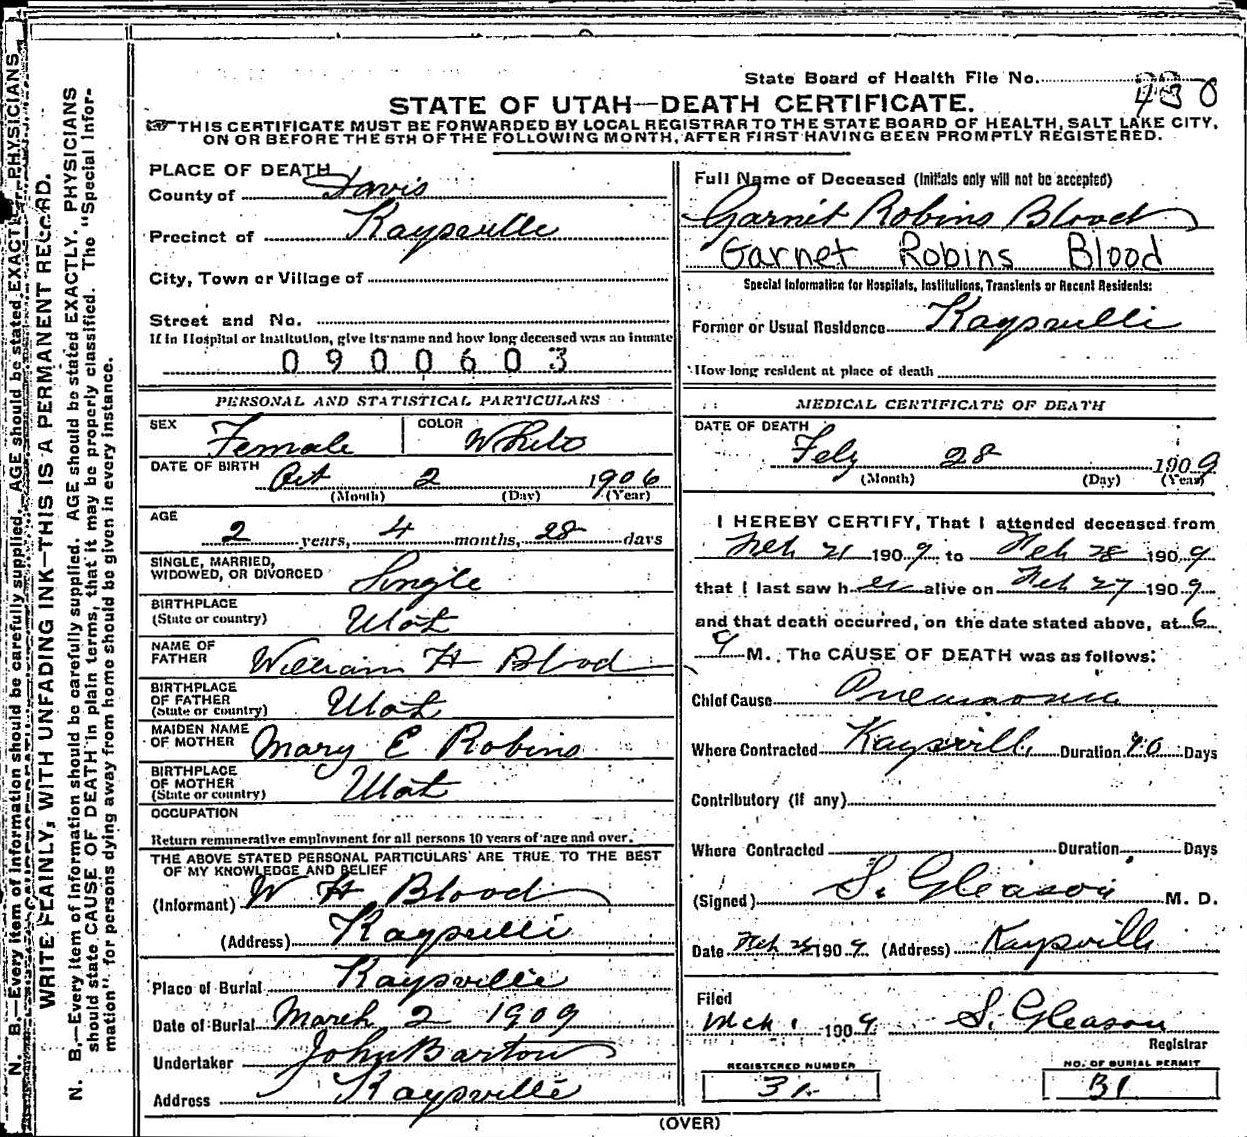 State Board of Health File No. 430
STATE OF UTAH—DEATH CERTIFICATE.
THIS CERTIFICATE MUST BE FORWARDED BY LOCAL REGISTRAR TO THE STATE BOARD OF HEALTH, SALT LAKE CITY,
ON OR BEFORE THE 5TH OF THE FOLLOWING MONTH, AFTER FIRST HAVING BEEN PROMPTLY REGISTERED.
PLACE OF DEATH
County of Davis
Precinct of Kaysville
City, Town or Village of
Street and No.
If in Hospital or Institution, give its name and how long deceased was an inmate
0900603
PERSONAL AND STATISTICAL PARTICULARS
SEX Female COLOR White
DATE OF BIRTH Oct 2 1906
(Month) (Day) (Year)
AGE
2 years, 4 months, 28 days
SINGLE, MARRIED,
WIDOWED, OR DIVORCED Single
BIRTHPLACE
(State or country) Utah
NAME OF
FATHER William H Blood
BIRTHPLACE
OF FATHER
(State or country) Utah
MAIDEN NAME
OF MOTHER Mary E Robins
BIRTHPLACE
OF MOTHER
(State or country) Utah
OCCUPATION
Return remunerative employment for all persons 10 years of age and over.
THE ABOVE STATED PERSONAL PARTICULARS ARE TRUE TO THE BEST
OF MY KNOWLEDGE AND BELIEF
(Informant) W H Blood
(Address) Kaysville
Place of Burial Kaysville
Date of Burial March 2 1909
Undertaker John Barton
Address Kaysville
Full Name of Deceased (Initials only will not be accepted)
Garnit Robins Blood
Garnet Robins Blood
Special Information for Hospitals, Institutions, Transients or Recent Residents:
Former or Usual Residence Kaysville
How long resident at place of death
MEDICAL CERTIFICATE OF DEATH
DATE OF DEATH
Feby 28 1909
(Month) (Day) (Year)
I HEREBY CERTIFY, That I attended deceased from
Feb 21 1909 to Feb 28 1909
that I last saw her alive on Feb 27 1909
and that death occurred, on the date stated above, at 6
a M. The CAUSE OF DEATH was as follows:
Chief Cause Pneumonia
Where Contracted Kaysville Duration Days
Contributory (if any)
Where Contracted Duration Days
(Signed) S. Gleason M. D.
Date Feb 28 1909 (Address) Kaysville
Filed
Mch 1 1909 S. Gleason
Registrar
REGISTERED NUMBER
31
NO. OF BURIAL PERMIT
31
(OVER)
N. B.—Every item of information should be carefully supplied. AGE should be stated EXACTLY. PHYSICIANS
WRITE PLAINLY, WITH UNFADING INK—THIS IS A PERMANENT RECORD.
N. B.—Every item of information should be carefully supplied. AGE should be stated EXACTLY. PHYSICIANS
should state CAUSE OF DEATH in plain terms, that it may be properly classified. The "Special Infor-
mation" for persons dying away from home should be given in every instance.